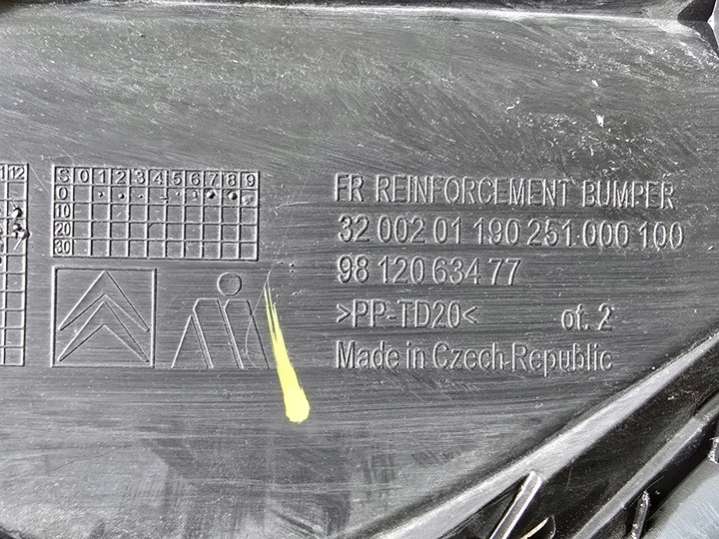 12
S 0 1 2 3 4 5 6 7 8 9
0
10
20
30
FR REINFORCEMENT BUMPER
32 002 01 190 251.000 100
98 120 634 77
>PP-TD20< ot. 2
Made in Czech Republic